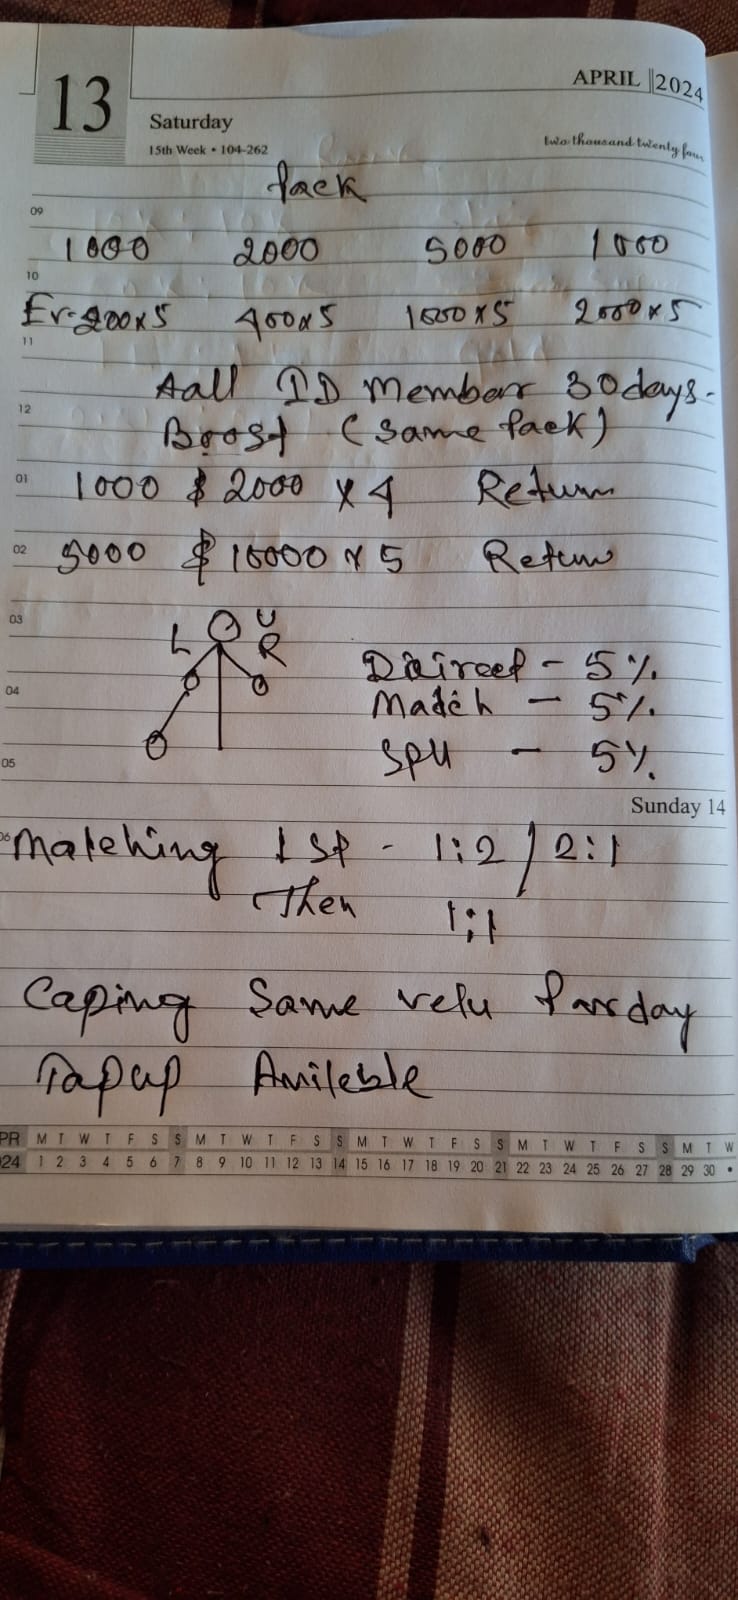 13
APRIL 2024
Saturday
15th Week • 104-262
two thousand twenty four
Pack
09
1000 2000 5000 1000
10
Ev-200x5 400x5 1000x5 2000x5
11
Aall ID Member 30days.
12
Boost (Same Pack)
01 1000 $ 2000 x 4 Return
02 5000 $ 10000 x 5 Return
03
U
L R
Daireet - 5%
04
Match - 5%
SPU - 5%
05
Sunday 14
06 Matching 1 St - 1:2 / 2:1
Then 1:1
Caping Same velu Parday
Tapup Avileble
APR M T W T F S S M T W T F S S M T W T F S S M T W T F S S M T W
2024 1 2 3 4 5 6 7 8 9 10 11 12 13 14 15 16 17 18 19 20 21 22 23 24 25 26 27 28 29 30 •